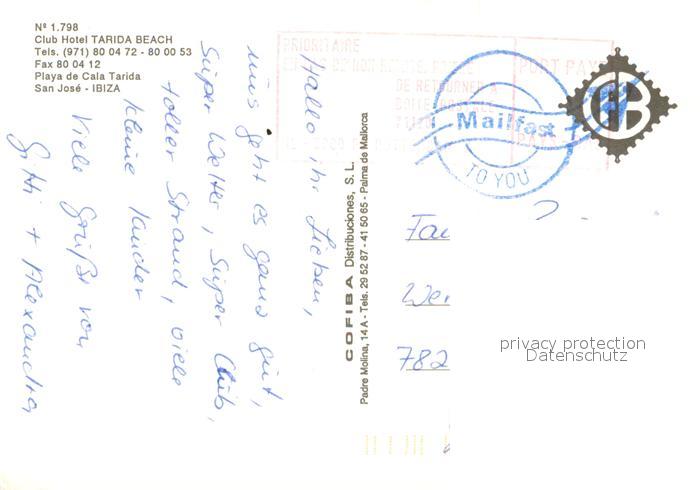 Nº 1.798
Club Hotel TARIDA BEACH
Tels. (971) 80 04 72 - 80 00 53
Fax 80 04 12
Playa de Cala Tarida
San José - IBIZA
Hallo ihr Lieben,
uns geht es ganz gut,
Super Wetter, Super Club,
toller Strand, viele
kleine Kinder
Viele Grüße von
Gitti + Alexandra
COFIBA Distribuciones, S. L.
Padre Molina, 14 A - Tels. 29 52 87 - 41 50 65 - Palma de Mallorca
PRIORITAIRE
EN CAS DE NON REMISE, PRIERE
DE RETOURNER A
PORT PAYE
Mailfast
TO YOU
Fa
We
782
privacy protection
Datenschutz